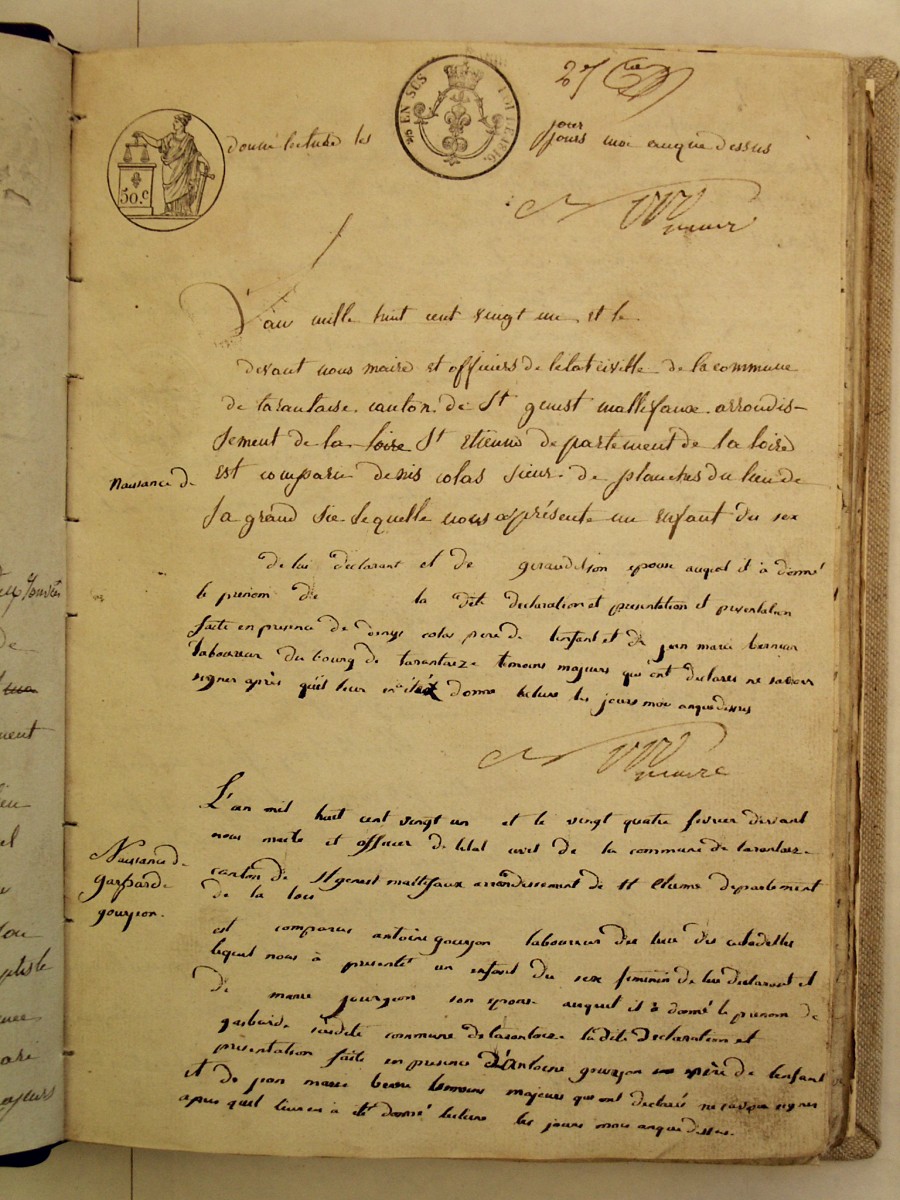 27
EN SUS
LOI DE 1816.
50.c
donné lecture les jour
jours moi anque dessus
maire
L'an mille huit cent vingt un et le
devant nous maire et officiers de letat civille de la commune
de tarantaise canton de St genest mallifaux arrondis-
sement de la loire St Etienne departement de la loire
est comparu denis colas sieur de planches du lieu de
la grand sie lequelle nous a présenté un enfant du sex
Naissance de
de lui déclarant et de epouse auquel il à donné
le prénom de la dite declaration et presentation et presentation
faite en presence de denys colas pere de lenfant et de jean marie
laboureur du bourg de tarantaize temoins majeurs qui ont declarés ne savoir
signer après qu'il leur en été donné lecture les jours moi anquedessus
maire
L'an mil huit cent vingt un et le vingt quatre février devant
nous maire et officier de letat civil de la commune de tarantaize
canton de St genest mallifaux arrondissement de St Etienne departement
de la loire
Naissance de
gaspard
gourjon.
est comparus antoine gourjon laboureur du lieu des citadelles
lequel nous à presenté un enfant du sex feminin de lui declarant et
de marie gourjeon son epouse auquel il à donné le prenom de
commune de tarantaize la dite declaration et
présentation faite en presence d'Antoine gourjon père de lenfant
et de jean marie temoins majeurs qui ont declaré ne savoir signer
apres quil leur en à été donné lecture les jours mois anque dessus.